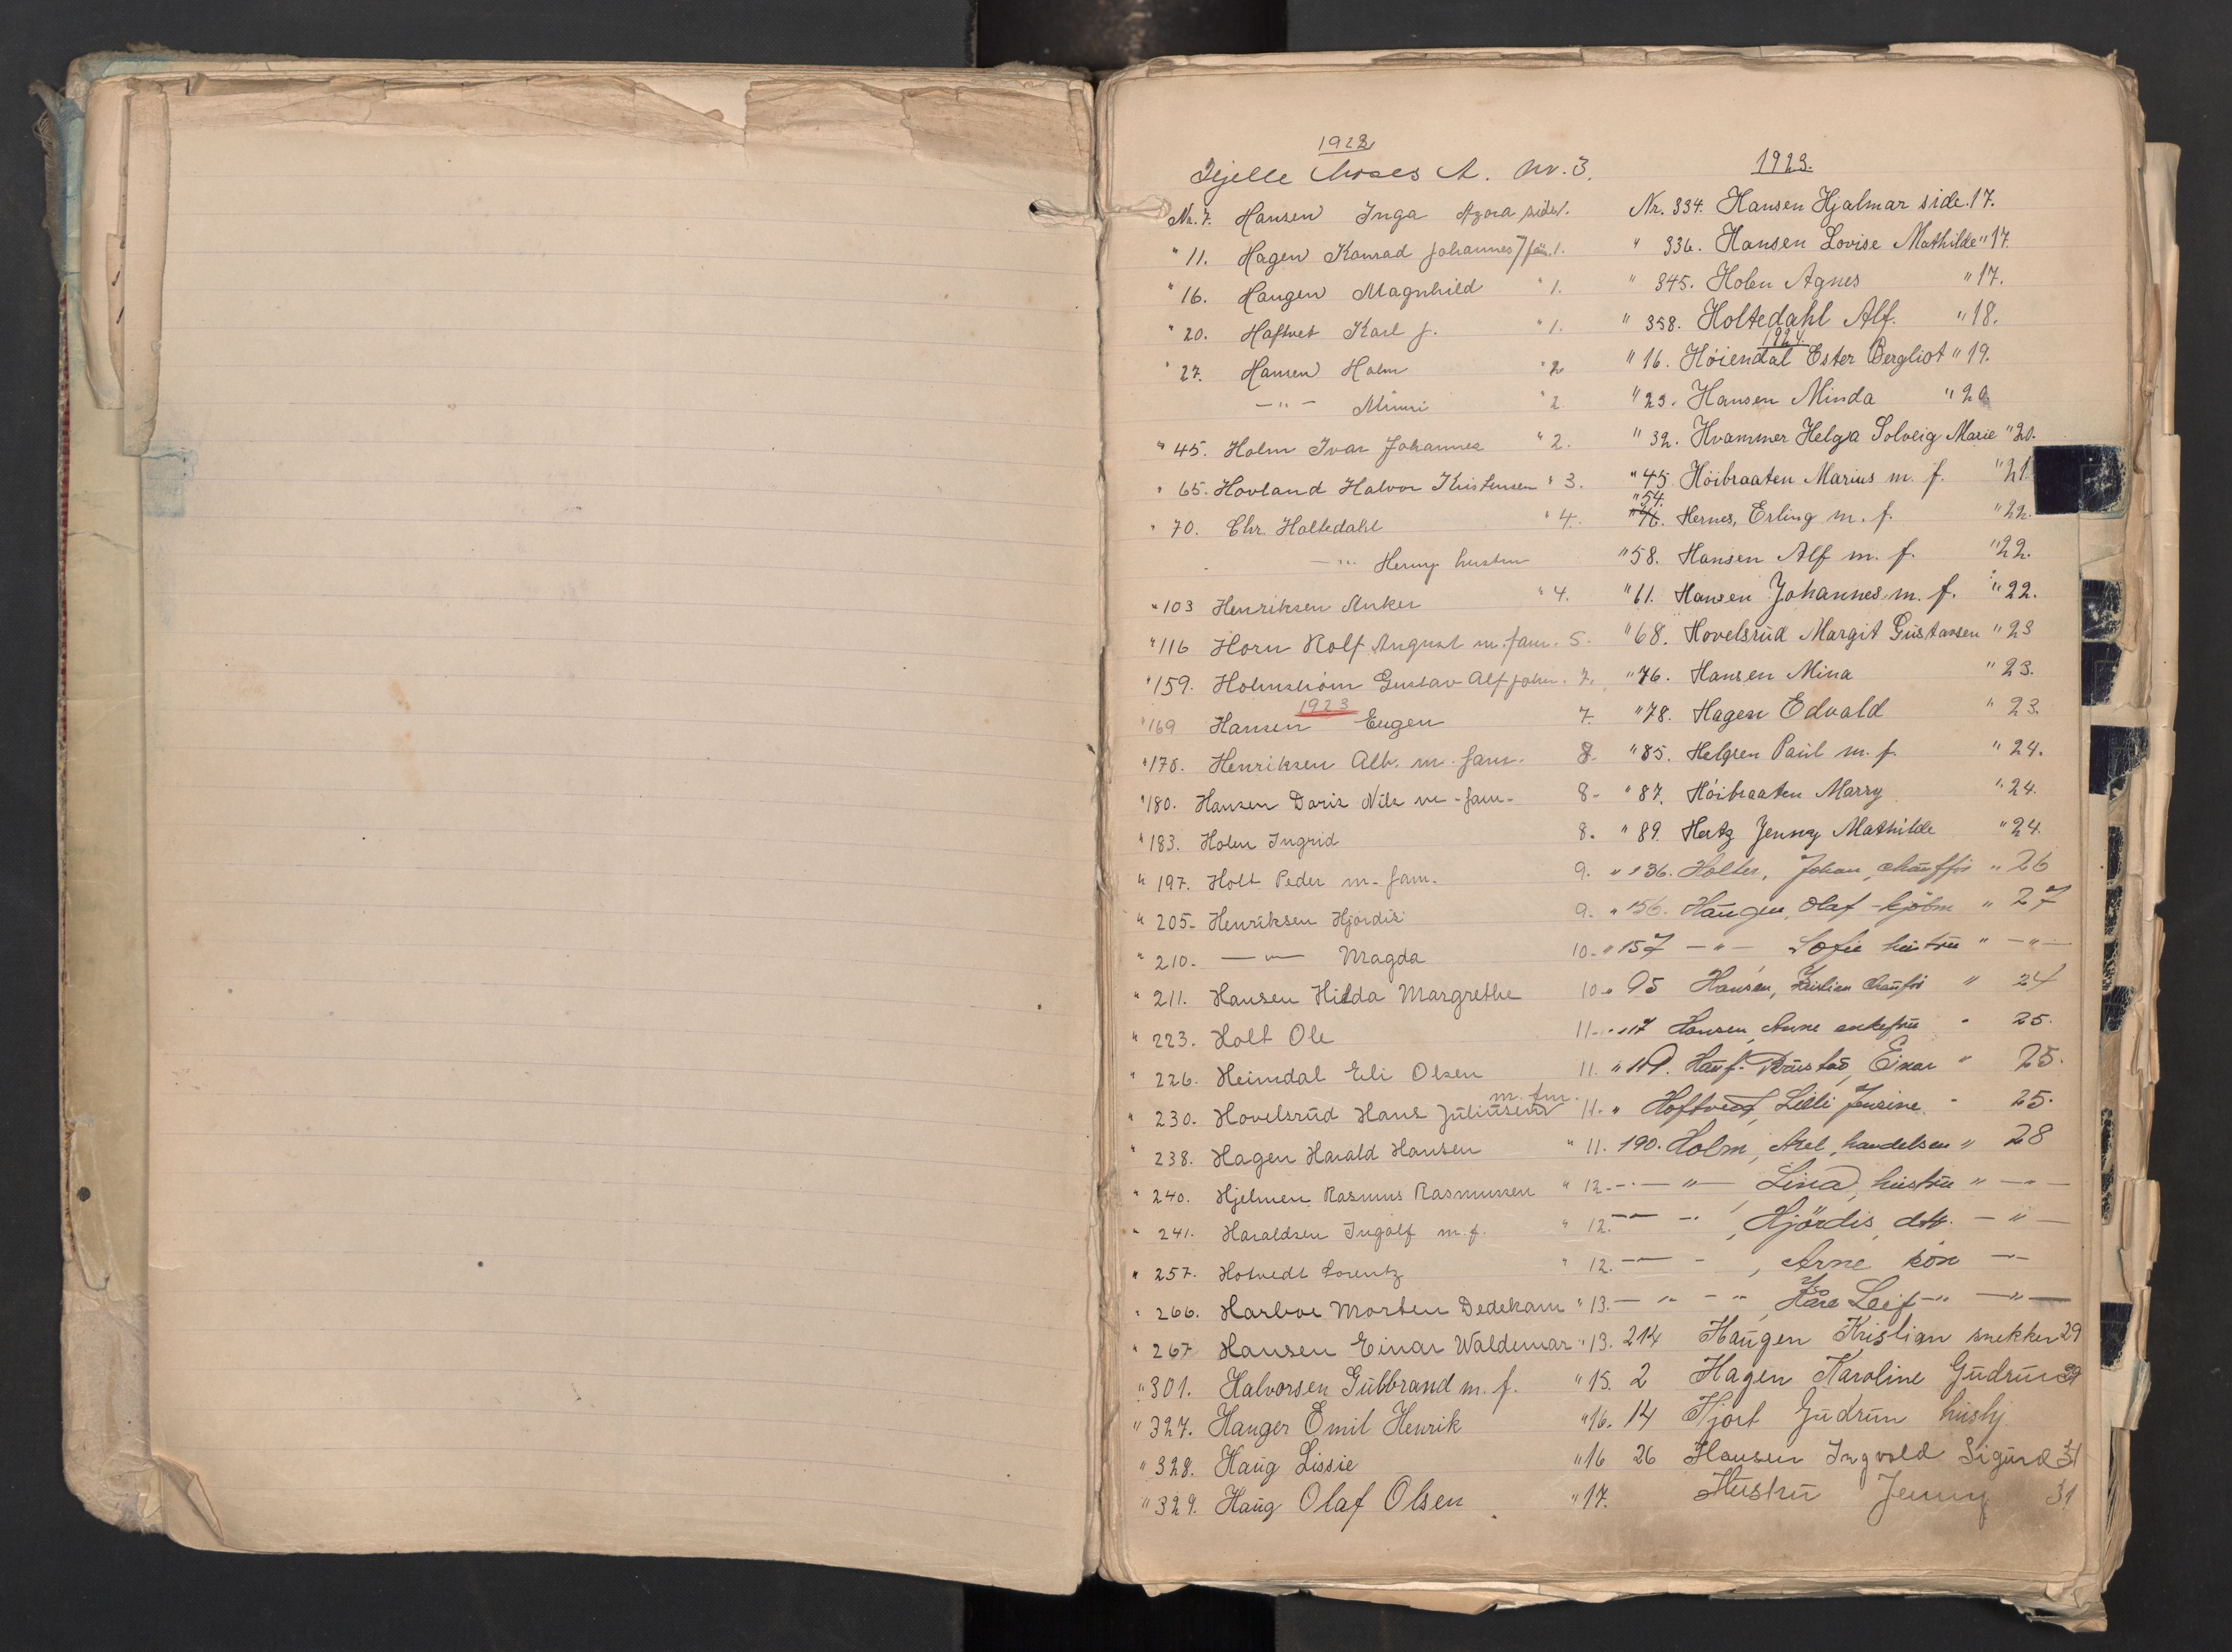 1922
Hjelle Moses A. Nr. 3.
Nr. 7. Hansen Inga Azora side 1.
" 11. Hagen Konrad Johannes / fam. 1.
" 16. Haugen Magnhild " 1.
" 20. Haftvet Karl J. " 1.
" 27. Hansen Holm " 2
— " — Minni " 2
" 45. Holm Ivar Johannes " 2.
" 65. Hovland Halvor Kristensen " 3.
" 70. Chr. Holtedahl " 4.
— " — Henny hustru
" 103 Henriksen Anker " 4.
" 116 Horn Rolf August m. fam. 5.
" 159. Holmström Gustav Alf Johu. 7.
1923
" 169 Hansen Eugen 7.
" 178. Henriksen Alb. m. fam. 8.
" 180. Hansen Doris Nils m - fam - 8 -
" 183. Holm Ingrid 8.
" 197. Holt Peder m - fam. 9.
" 205. Henriksen Hjördis 9.
" 210. — " — Magda 10.
" 211. Hansen Hilda Margrethe 10.
" 223. Holt Ole 11.
" 226. Heimdal Eli Olsen 11.
" 230. Hovelsrud Hans Juliusen m. fm. 11.
" 238. Hagen Harald Hansen " 11.
" 240. Hjelmen Rasmus Rasmussen " 12.
" 241. Haraldsen Ingolf m. f. " 12.
" 257. Hotvedt Lorentz " 12.
" 266. Harboe Morten Dedekam " 13.
" 267 Hansen Einar Waldemar " 13.
" 301. Halvorsen Gubbrand m. f. " 15.
" 327. Hanger Emil Henrik " 16.
" 328. Haug Lissie " 16
" 329. Haug Olaf Olsen " 17.
1923.
Nr. 334. Hansen Hjalmar side. 17.
" 336. Hansen Lovise Mathilde " 17.
" 345. Holm Agnes " 17.
" 358. Holtedahl Alf. " 18.
1924.
" 16. Höiendal Ester Bergliot " 19.
" 23. Hansen Minda " 20
" 32. Hvammer Helga Solveig Marie " 20.
" 45. Höibraaten Marius m. f. " 21.
" 54. Hernes, Erling m. f. " 22.
" 58. Hansen Alf m. f. " 22.
" 61. Hansen Johannes m. f. " 22.
" 68. Hovelsrud Margit Gustavsen " 23
" 76. Hansen Mina " 23.
" 78. Hagen Edvald " 23.
" 85. Helgsen Paul m. f. " 24.
" 87. Höibraaten Marry " 24.
" 89. Hertz Jenny Mathilde " 24.
" 136. Holter, Johan, chaufför " 26
" 156. Haugen, Olaf - kjöbm " 27
" 157 — " — Sofie hustru " — " —
" 95 Hansen, Kristian chauför " 24
" 117 Hansen, Anne enkefru " 25.
" 119. Hauf-Bustad, Einar " 25.
" Hoftvedt, Lilli Jensine " 25.
190. Holm, Axel, handelsm " 28
— " — Lina, hustru " — " —
— " — , Hjördis, dttr. — " —
— " — , Arne sön — " —
— " — " Kåre Leif — " — " —
214 Haugen Kristian snekker 29
2 Hagen Karoline Gudrun 29
14 Hjort Gudrun hushj
26 Hansen Ingvald Sigurd 31
Hustru Jenny 31